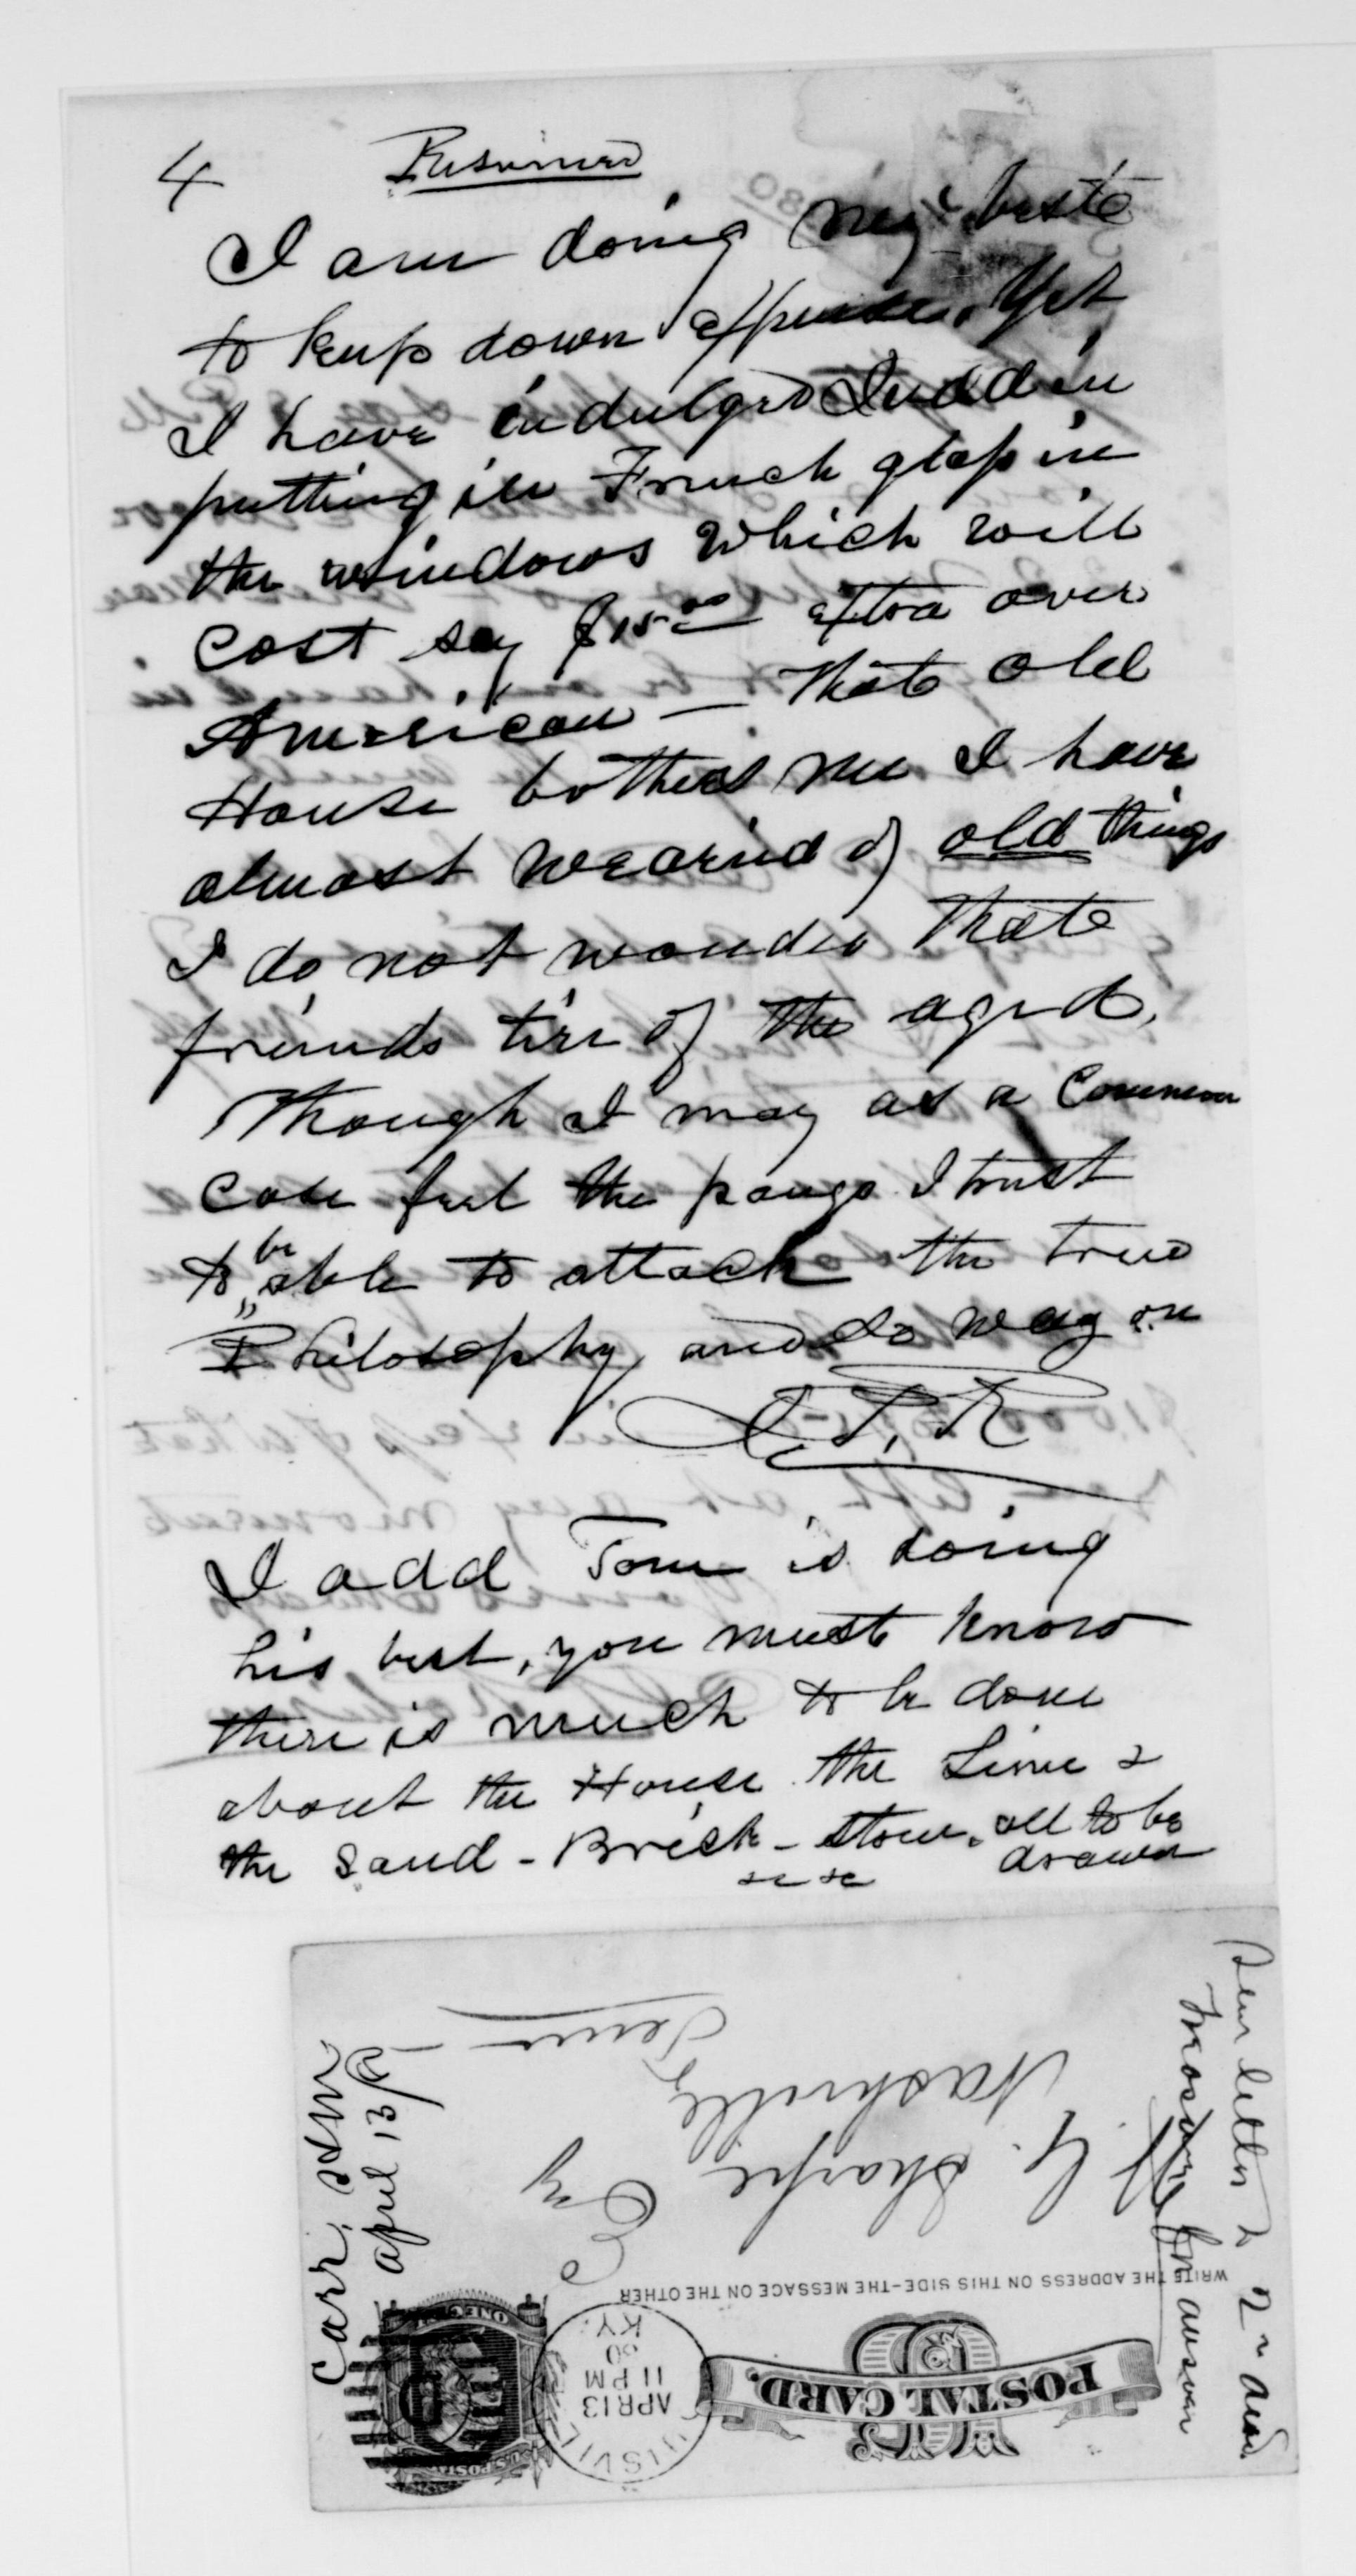 4 Resumed
I am doing my best
to keep down expense, Yet
I have indulged Judd in
putting in French glass in
the windows which will
cost say $15.00 extra over
American — That old
House bothers me I have
almost wearied of old things
I do not wonder that
friends tire of the aged,
Though I may as a Common
case feel the pangs I trust
to be able to attach the true
Philosophy and so wag on
I add Tom is doing
his best, you must know
there is much to be done
about the House the Lime &
the Sand - Brick - stone, all to be
drawn
&c &c
POSTAL CARD.
WRITE THE ADDRESS ON THIS SIDE-THE MESSAGE ON THE OTHER
APR 13
11 PM
80
KY.
U.S. POSTAGE
ONE CENT
Sharpe Esq
Nashville
Tenn
Carr,
April 13/80
Sent letter
Treasurer for answer